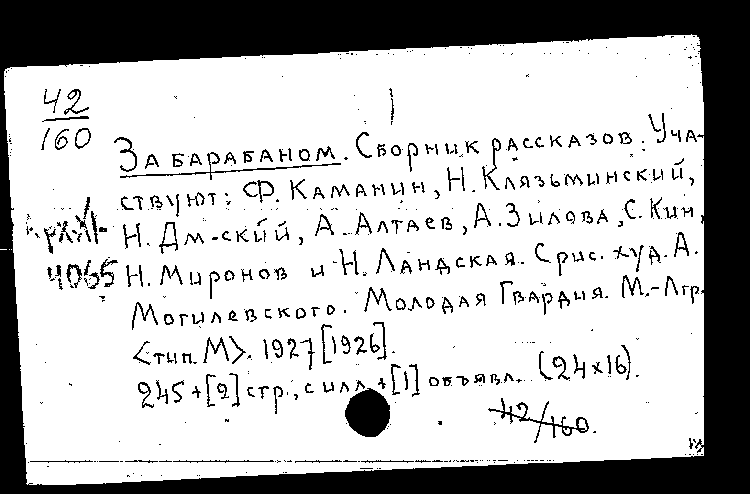 42
160
За барабаном. Сборник рассказов. Уча-
ствуют: Ф. Каманин, Н. Клязьминский,
Н. Дм-ский, А. Алтаев, А. Зилова, С. Кин,
4065 Н. Миронов и Н. Ландская. С рис. худ. А.
Могилевского. Молодая Гвардия. М.-Лгр.
<тип. М>. 1927 [1926].
245+[2] стр., с илл. +[1] объявл. (24x16).
42/160.